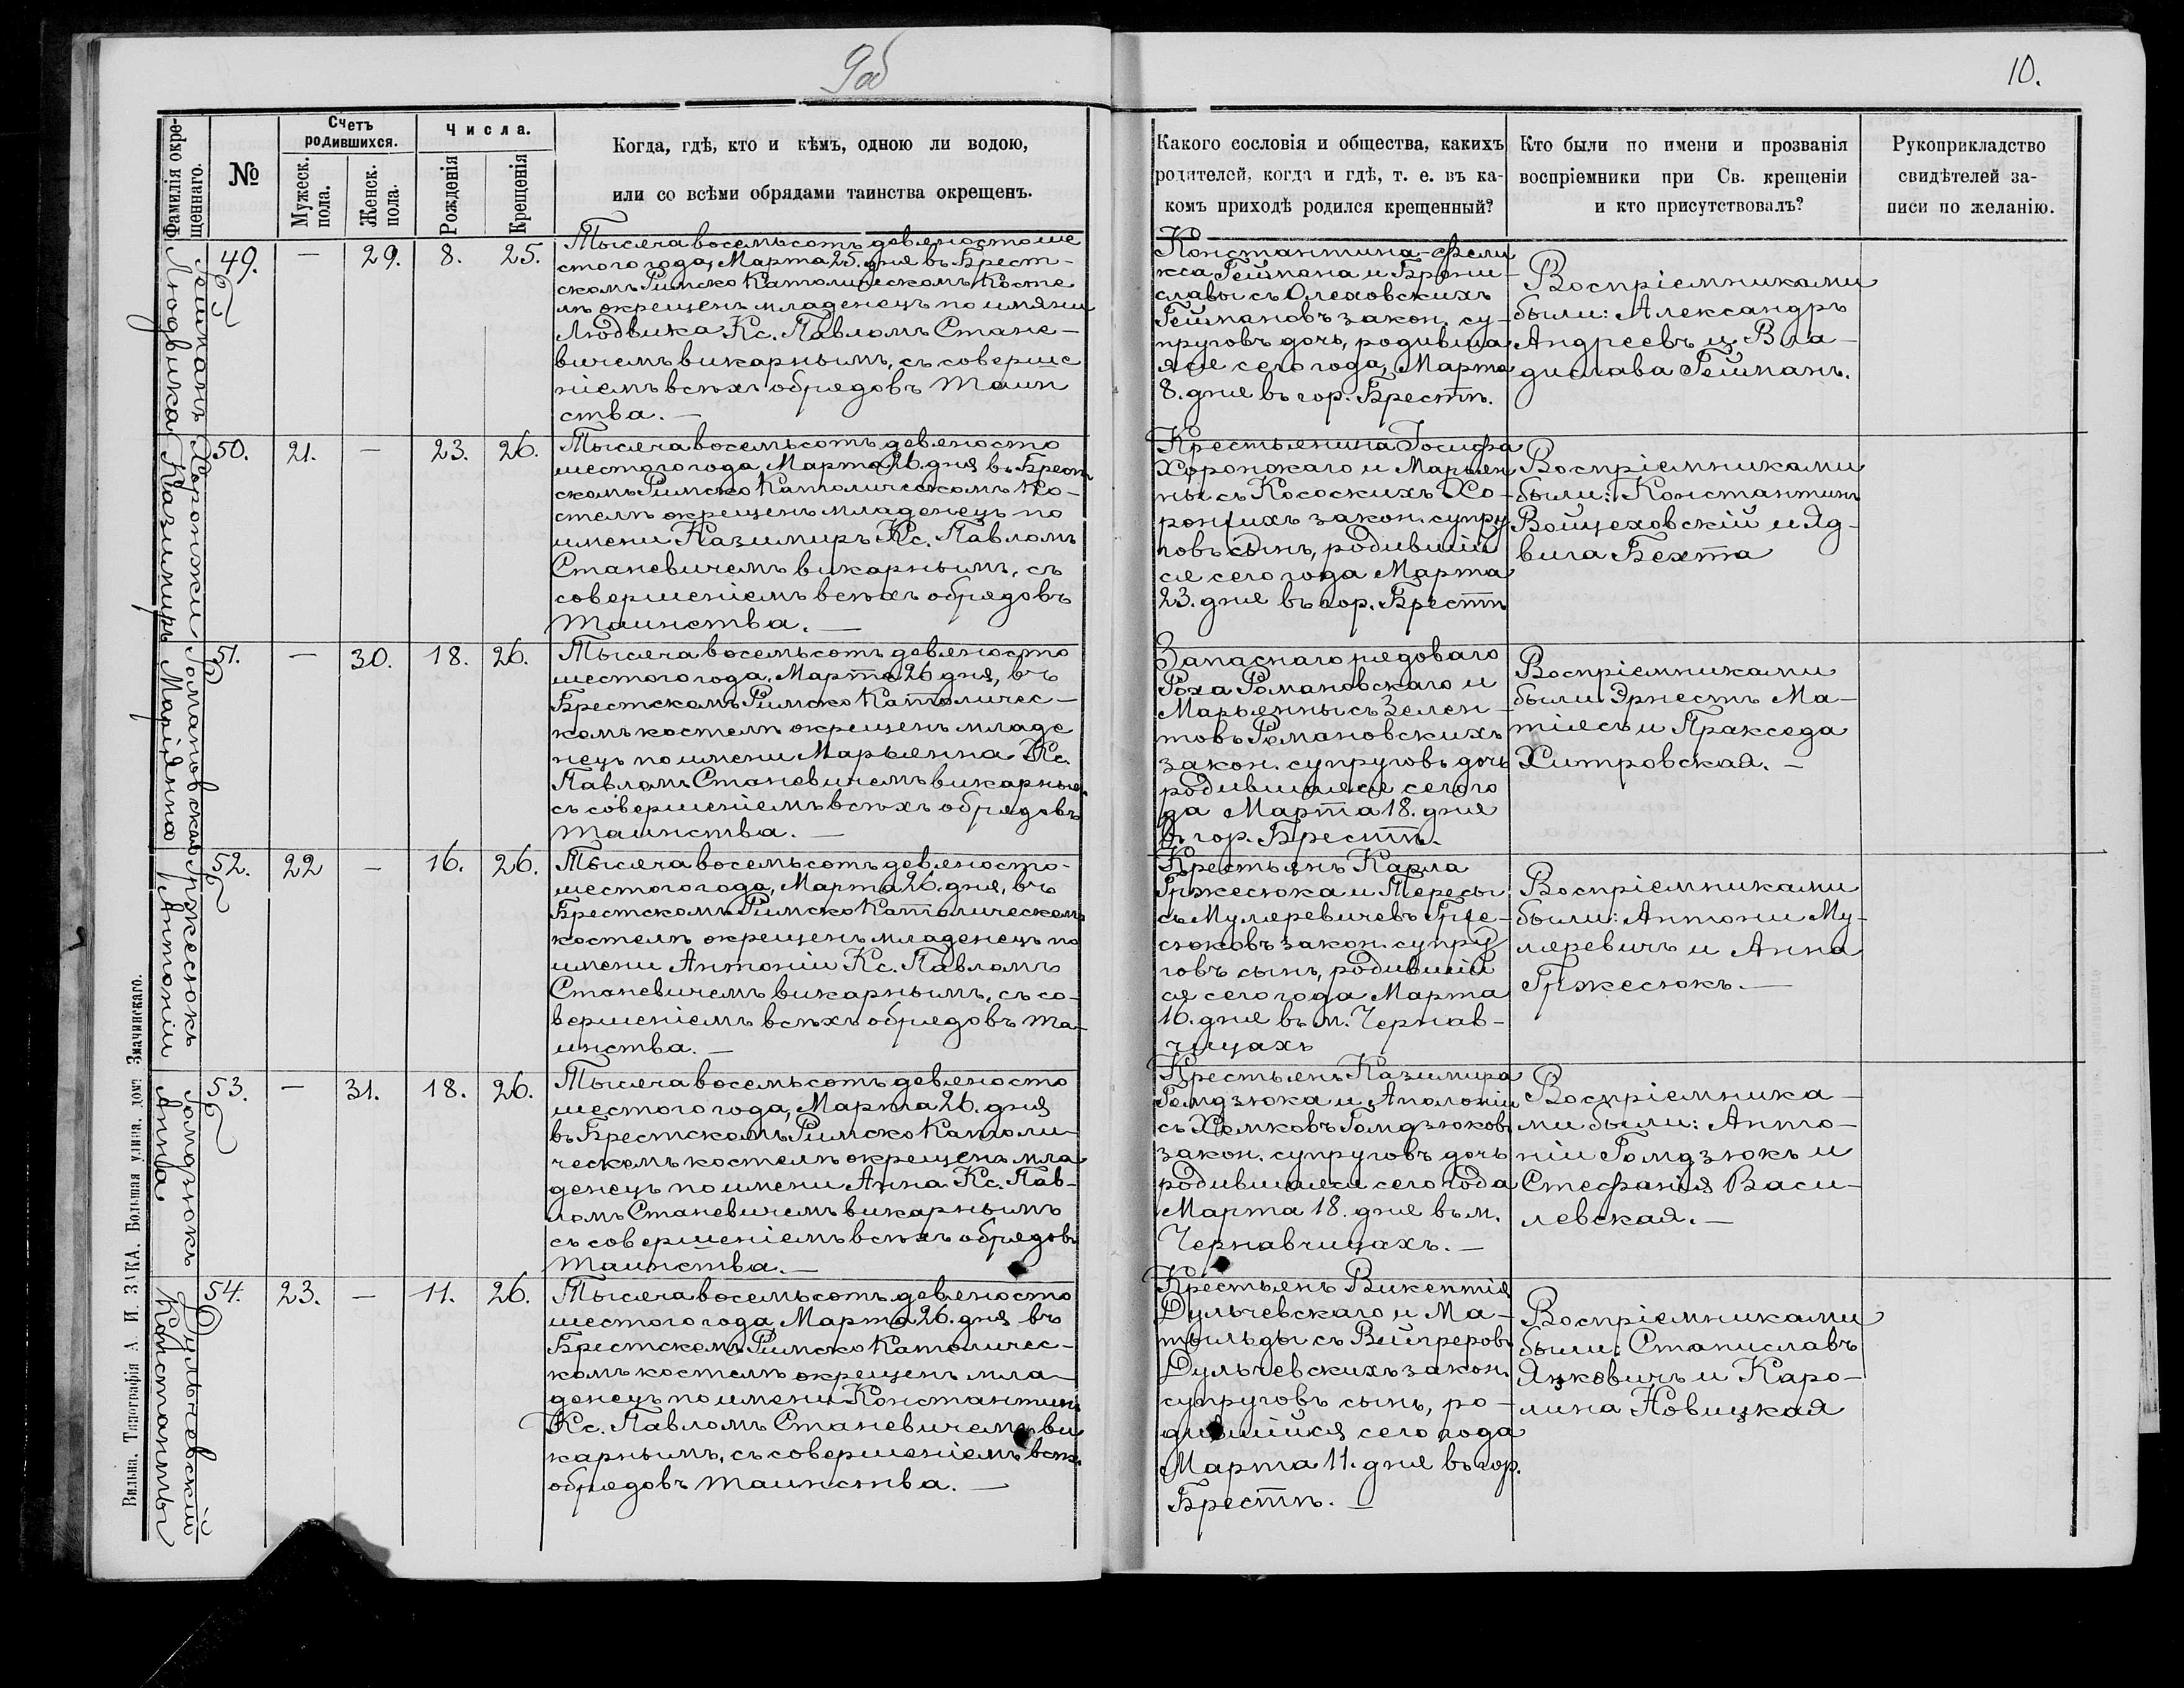 9об
10.
Фамилія окре-
щеннаго.
№
Счетъ
родившихся.
Мужеск.
пола.
Женск.
пола.
Числа.
Рожденія
Крещенія
Когда, гдѣ, кто и кѣмъ, одною ли водою,
или со всѣми обрядами таинства окрещенъ.
Какого сословія и общества, какихъ
родителей, когда и гдѣ, т. е. въ ка-
комъ приходѣ родился крещенный?
Кто были по имени и прозванія
воспріемники при Св. крещеніи
и кто присутствовалъ?
Рукоприкладство
свидѣтелей за-
писи по желанію.
Гейшанъ
Людвика
49. — 29. 8. 25.
Тысяча восемьсотъ девяносто ше
стого года, Марта 25. дня въ Брест-
скомъ Римско Католическомъ Косте
лѣ окрещенъ младенецъ по имяни
Людвика Кс. Павломъ Стане-
вичемъ викарнымъ, съ соверше
ніемъ всѣхъ обрядовъ Таин
ства. —
Константина-Фели
кса Гейшана и Брони-
славы съ Олеховскихъ
Гейшановъ закон. су-
пруговъ дочь, родивша
яся сего года, Марта
8. дня въ гор. Брестѣ.
Воспріемниками
были: Александръ
Андреевъ и Вла-
дислава Гейшанъ.
Хоронжи
Казимиръ
50. 21. — 23. 26.
Тысяча восемьсотъ девяносто
шестого года, Марта 26. дня въ Брест
скомъ Римско Католическомъ Ко-
стелѣ окрещенъ младенецъ по
имени Казимиръ Кс. Павломъ
Станевичемъ викарнымъ, съ
совершеніемъ всѣхъ обрядовъ
Таинства. —
Крестьянина Іосифа
Хоронжаго и Марьян
ны съ Кососкихъ Хо-
ронжихъ закон. супру
говъ сынъ, родившій
ся сего года Марта
23. дня въ гор. Брестѣ
Воспріемниками
были: Константинъ
Войцеховскій и Яд-
вига Бехта
Романовская
Маріянна
51. — 30. 18. 26.
Тысяча восемьсотъ девяносто
шестого года, Марта 26 дня, въ
Брестскомъ Римско Католичес-
комъ костелѣ окрещенъ младе
нецъ по имени Марьянна Кс.
Павломъ Станевичемъ викарным.
съ совершеніемъ всѣхъ обрядовъ
Таинства. —
Запаснаго рядоваго
Роха Романовскаго и
Марьянны съ Зелен-
товъ Романовскихъ
закон. супруговъ дочь
родившаяся сего го
да Марта 18. дня
въ гор. Брестѣ.
Воспріемниками
были Эрнестъ Ма-
тіясъ и Пракседа
Хитровская. —
Гржесюкъ
Антоніи
52. 22 — 16. 26.
Тысяча восемьсотъ девяносто-
шестого года, Марта 26. дня, въ
Брестскомъ Римско Католическомъ
костелѣ окрещенъ младенецъ по
имени Антоніи Кс. Павломъ
Станевичемъ викарнымъ, съ со-
вершеніемъ всѣхъ обрядовъ та-
инства. —
Крестьянъ Карла
Гржесюка и Тересы
съ Муляревичевъ Грже-
сюковъ закон. супру
говъ сынъ, родившій
ся сего года Марта
16. дня въ м. Чернав-
чицахъ
Воспріемниками
были: Антони Му-
ляревичъ и Анна
Гржесюкъ. —
Гомдзюкъ
Анна
53. — 31. 18. 26.
Тысяча восемьсотъ девяносто
шестого года, Марта 26. дня
въ Брестскомъ Римско Католи-
ческомъ костелѣ окрещенъ мла
денецъ по имени Анна Кс. Пав-
ломъ Станевичемъ викарнымъ
съ совершеніемъ всѣхъ обрядовъ
Таинства. —
Крестьянъ Казимира
Гомдзюка и Аполоніи
съ Хомковъ Гомдзюковъ
закон. супруговъ дочь
родившаяся сего года
Марта 18. дня въ м.
Чернавчицахъ. —
Воспріемника-
ми были: Анто-
ніи Гомдзюкъ и
Стефанія Васи-
левская. —
Дульчевскій
Константы
54. 23. — 11. 26.
Тысяча восемьсотъ девяносто
шестого года, Марта 26. дня въ
Брестскомъ Римско Католичес-
комъ костелѣ окрещенъ мла-
денецъ по имени Константинъ
Кс. Павломъ Станевичемъ ви
карнымъ, съ совершеніемъ всѣх.
обрядовъ Таинства. —
Крестьянъ Викентія
Дульчевскаго и Ма-
тильды съ Вейгреровъ
Дульчевскихъ закон.
супруговъ сынъ, ро-
дившійся сего года
Марта 11. дня въ гор.
Брестѣ. —
Воспріемниками
были: Станиславъ
Янковичъ и Каро-
лина Новицкая
Вильна. Типографія А. И. ЗАКА. Большая улица, домъ Значинскаго.